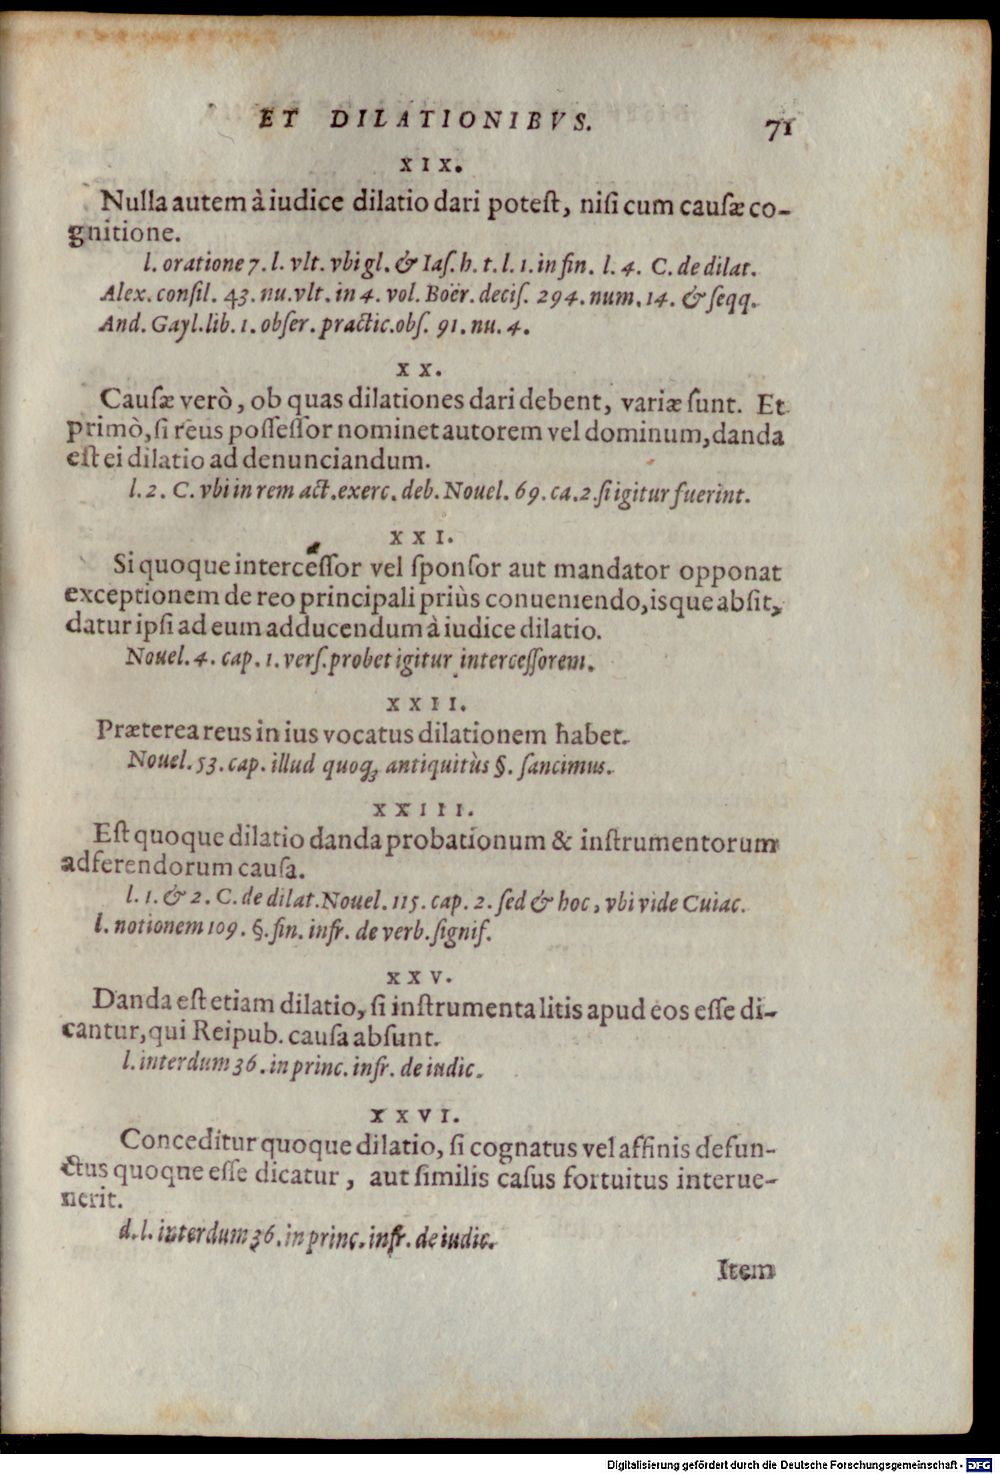 ET DILATIONIBVS. 71
XIX.
Nulla autem à iudice dilatio dari potest, nisi cum causæ co-
gnitione.
l. oratione 7. l. vlt. vbi gl. & Ias. h. t. l. 1. in fin. l. 4. C. de dilat.
Alex. consil. 43. nu. vlt. in 4. vol. Boër. decis. 294. num. 14. & seqq.
And. Gayl. lib. 1. obser. practic. obs. 91. nu. 4.
XX.
Causæ verò, ob quas dilationes dari debent, variæ sunt. Et
primò, si reus possessor nominet autorem vel dominum, danda
est ei dilatio ad denunciandum.
l. 2. C. vbi in rem act. exerc. deb. Nouel. 69. ca. 2. si igitur fuerint.
XXI.
Si quoque intercessor vel sponsor aut mandator opponat
exceptionem de reo principali priùs conueniendo, isque absit,
datur ipsi ad eum adducendum à iudice dilatio.
Nouel. 4. cap. 1. vers. probet igitur intercessorem.
XXII.
Præterea reus in ius vocatus dilationem habet.
Nouel. 53. cap. illud quoq; antiquitùs §. sancimus.
XXIII.
Est quoque dilatio danda probationum & instrumentorum
adferendorum causa.
l. 1. & 2. C. de dilat. Nouel. 115. cap. 2. sed & hoc, vbi vide Cuiac.
l. notionem 109. §. fin. infr. de verb. signif.
XXV.
Danda est etiam dilatio, si instrumenta litis apud eos esse di-
cantur, qui Reipub. causa absunt.
l. interdum 36. in princ. infr. de iudic.
XXVI.
Conceditur quoque dilatio, si cognatus vel affinis defun-
ctus quoque esse dicatur, aut similis casus fortuitus interue-
nerit.
d. l. interdum 36. in princ. infr. de iudic.
Item
Digitalisierung gefördert durch die Deutsche Forschungsgemeinschaft - DFG